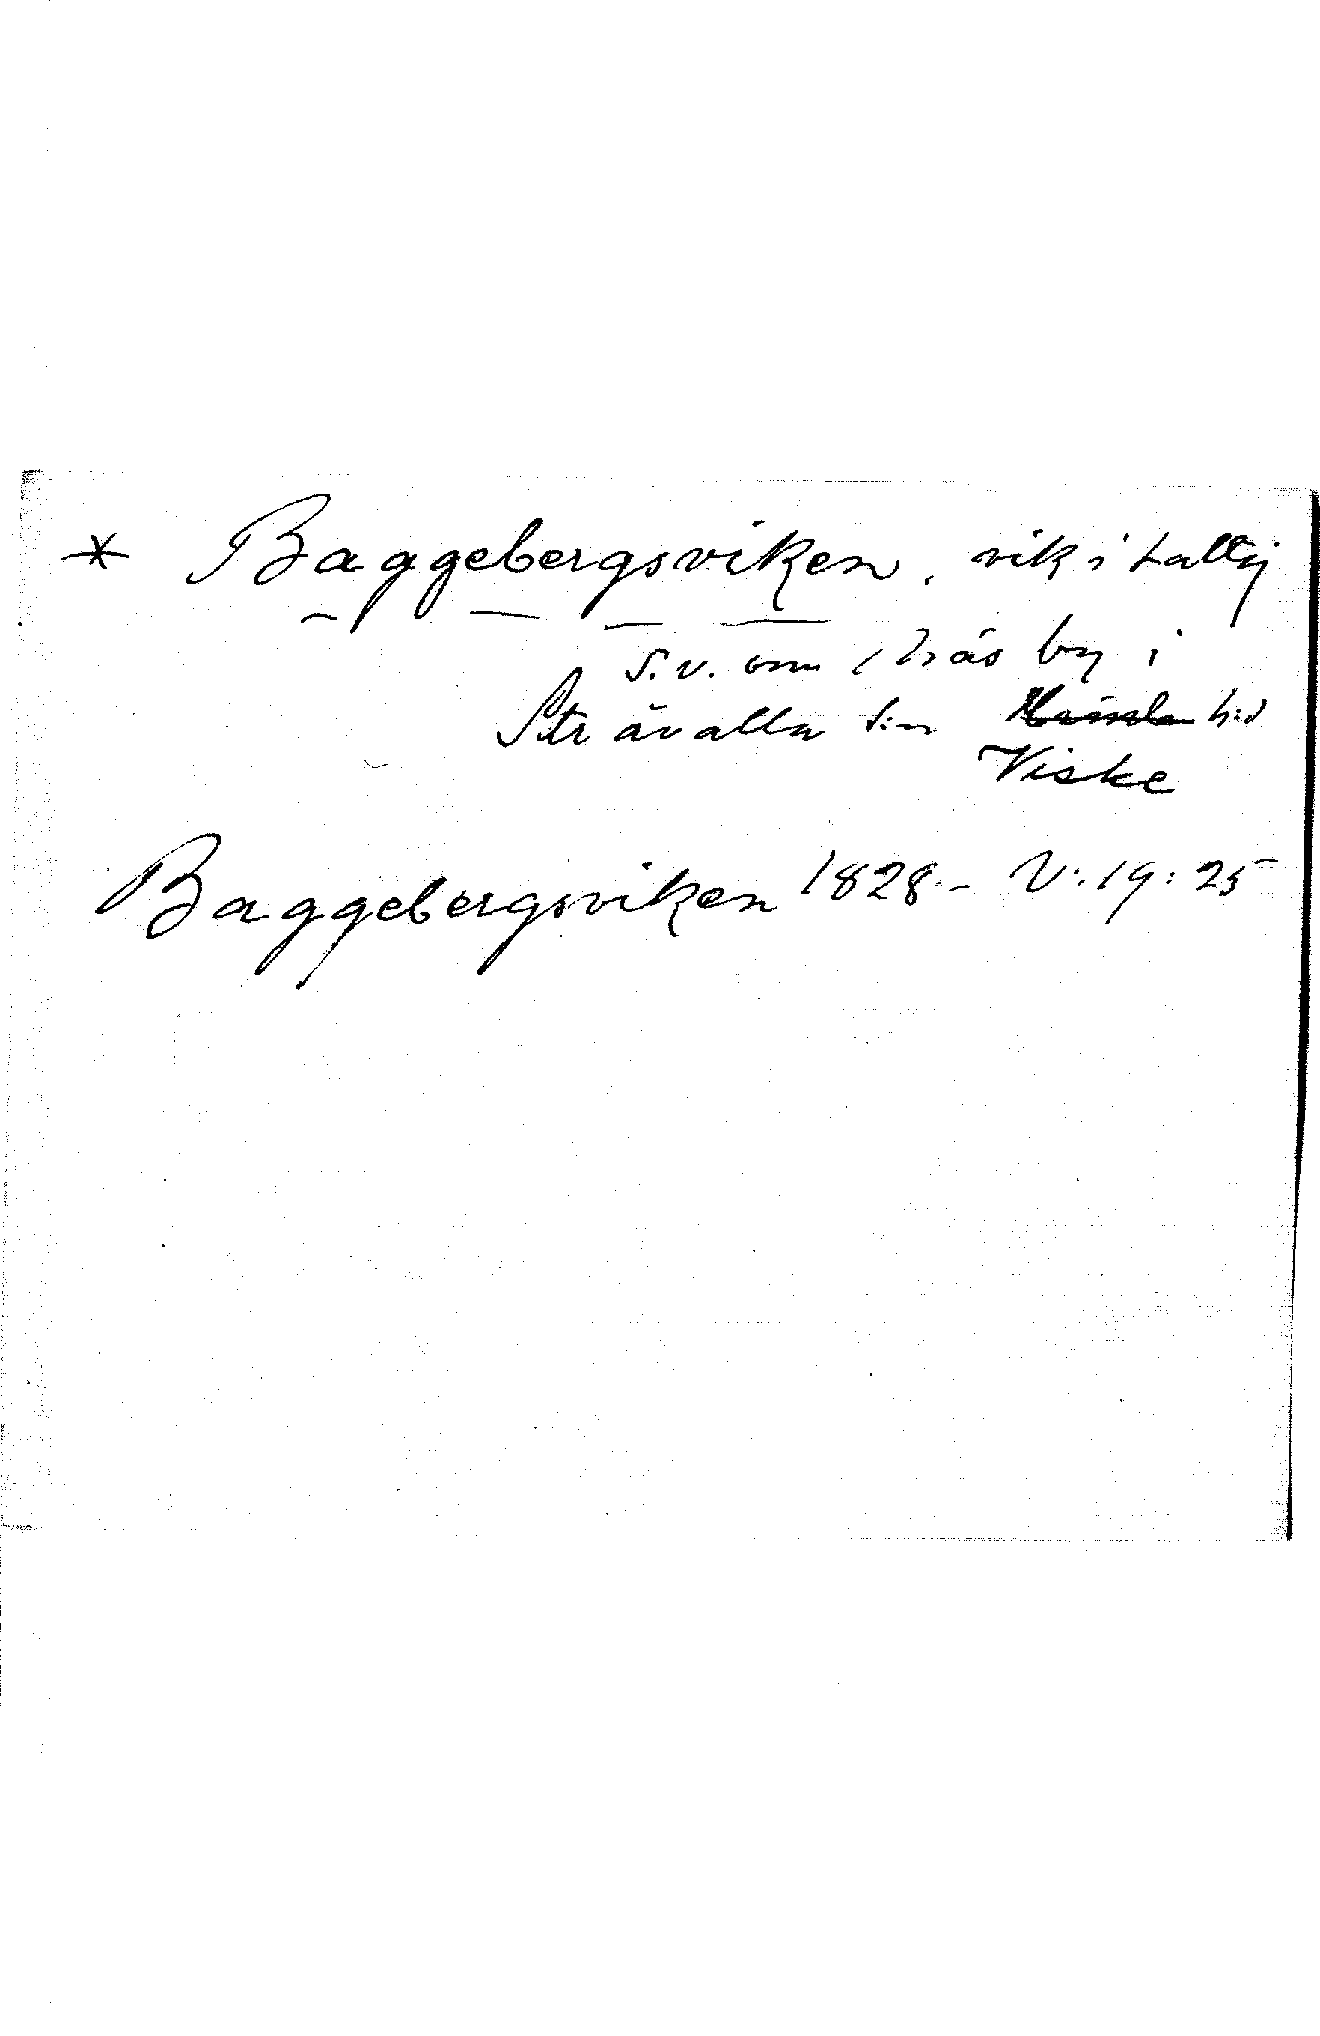 * Baggebergsviken, vik i Kattg
S.v. om Näs by i
Strävalla s:n hd
Viske
Baggebergsviken 1828 - V:19:25